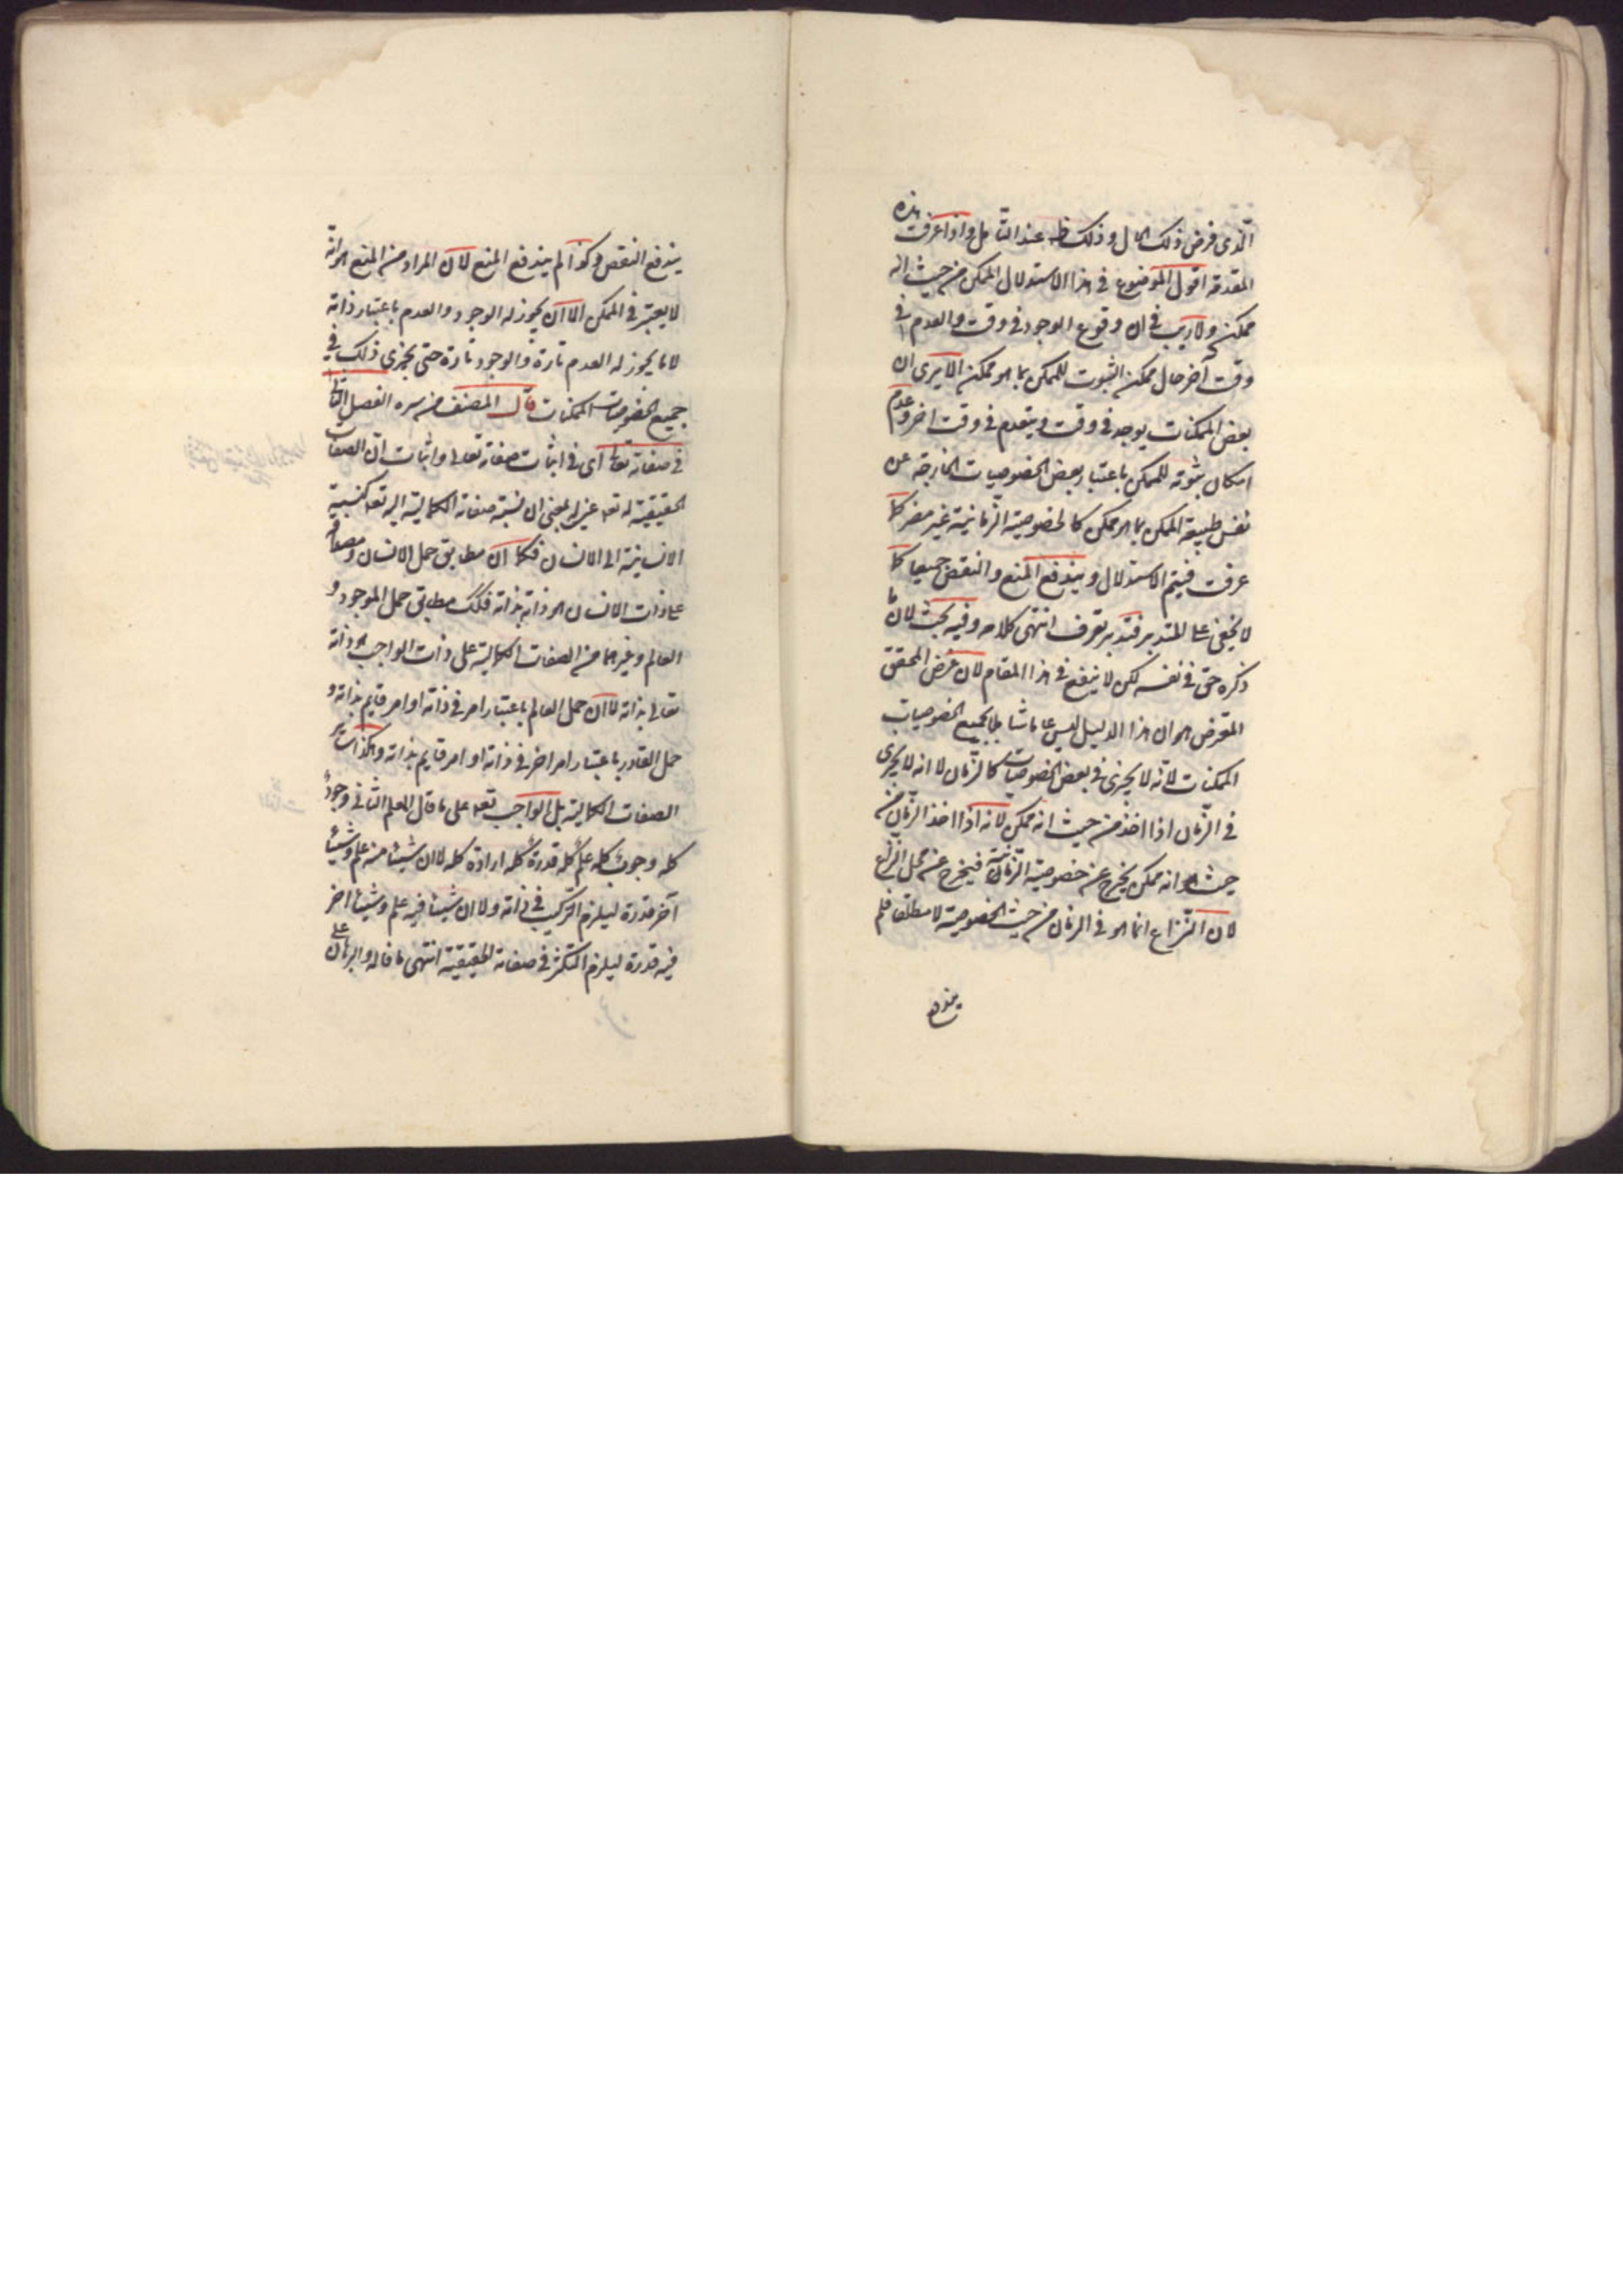 الذي فرض ذلك الحال وذلك ظ عند التأمل واذا عرفت هذه
المقدمة اقول الموضوع في هذا الاستدلال الممكن من حيث انه
ممكن ولا ريب في ان وقوع الوجود في وقت والعدم في
وقت آخر حال ممكن الثبوت للممكن بما هو ممكن الا يرى ان
بعض الممكنات يوجد في وقت وينعدم في وقت اخر وعدم
امكان ثبوته للممكن باعتبار بعض الخصوصيات الخارجة عن
نفس طبيعة الممكن بما هو ممكن كالخصوصية الزمانية غير مضر كما
عرفت فيتم الاستدلال ويندفع المنع والنقض جميعا كما
لا يخفى على المتدبر فتدبر تعرف انتهى كلامه وفيه بحث لان ما
ذكره حق في نفسه لكن لا ينفع في هذا المقام لان غرض المحقق
المعترض هو ان هذا الدليل ليس عاما شاملا لجميع الخصوصيات
الممكنات لانه لا يجرى في بعض الخصوصيات كالزمان لا انه لا يجرى
في الزمان اذا اخذ من حيث انه ممكن لانه اذا اخذ الزمان من
حيث هو انه ممكن يخرج عن خصوصية الزمانية فيخرج عن محل النزاع
لان النزاع انما هو في الزمان من حيث الخصوصية لا مطلقا فلم
يندفع
يندفع النقض وكذا لم يندفع المنع لان المراد من المنع هو انه
لا يعتبر في الممكن الا ان يجوز له الوجود والعدم باعتبار ذاته
لا ما يجوز له العدم تارة والوجود تارة حتى يجرى ذلك في
جميع الخصوصيات الممكنات قال المصنف قدس سره الفصل الثاني
في صفاته تعالى اي في اثبات صفاته تعالى واثبات ان الصفات
الحقيقية له تعالى عين له بمعنى ان نسبة صفاته الكمالية اليه تعالى كنسبة
الانسانية الى الانسان فكما ان مطابق حمل الانسان ومصداقه
على ذات الانسان هو ذاته بذاته فكذلك مطابق حمل الموجود و
العالم وغيرهما من الصفات الكمالية على ذات الواجب هو ذاته
تعالى بذاته لا ان حمل العالم باعتبار امر في ذاته او امر قايم بذاته و
حمل القادر باعتبار امر اخر في ذاته او امر قايم بذاته وهكذا سائر
الصفات الكمالية بل الواجب تعالى على ما قال المعلم الثاني وجود
كله وجوب كله علم كله قدرة كله ارادة كله لا ان شيئا منه علم وشيئا
آخر قدرة ليلزم التركيب في ذاته ولا ان شيئا فيه علم وشيئا اخر
فيه قدرة ليلزم التكثر في صفاته الحقيقية انتهى ما قاله والبرهان على